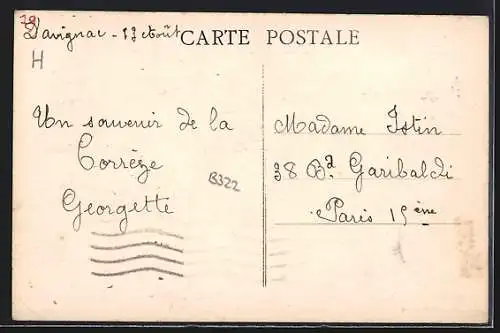 20
Davignac - 13 Août
CARTE POSTALE
H
Un souvenir de la
Corrèze
Georgette
B322
Madame Istin
38 Bd Garibaldi
Paris 15ème